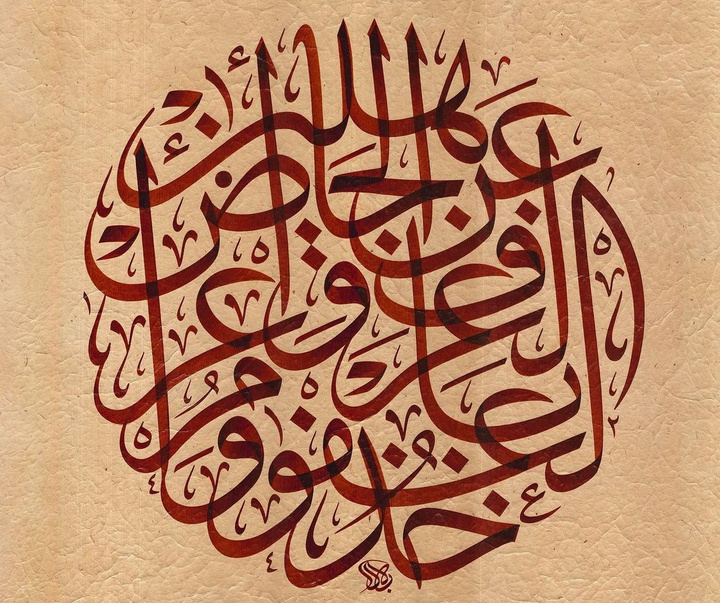 خذ العفو وأمر بالعرف وأعرض عن الجاهلين